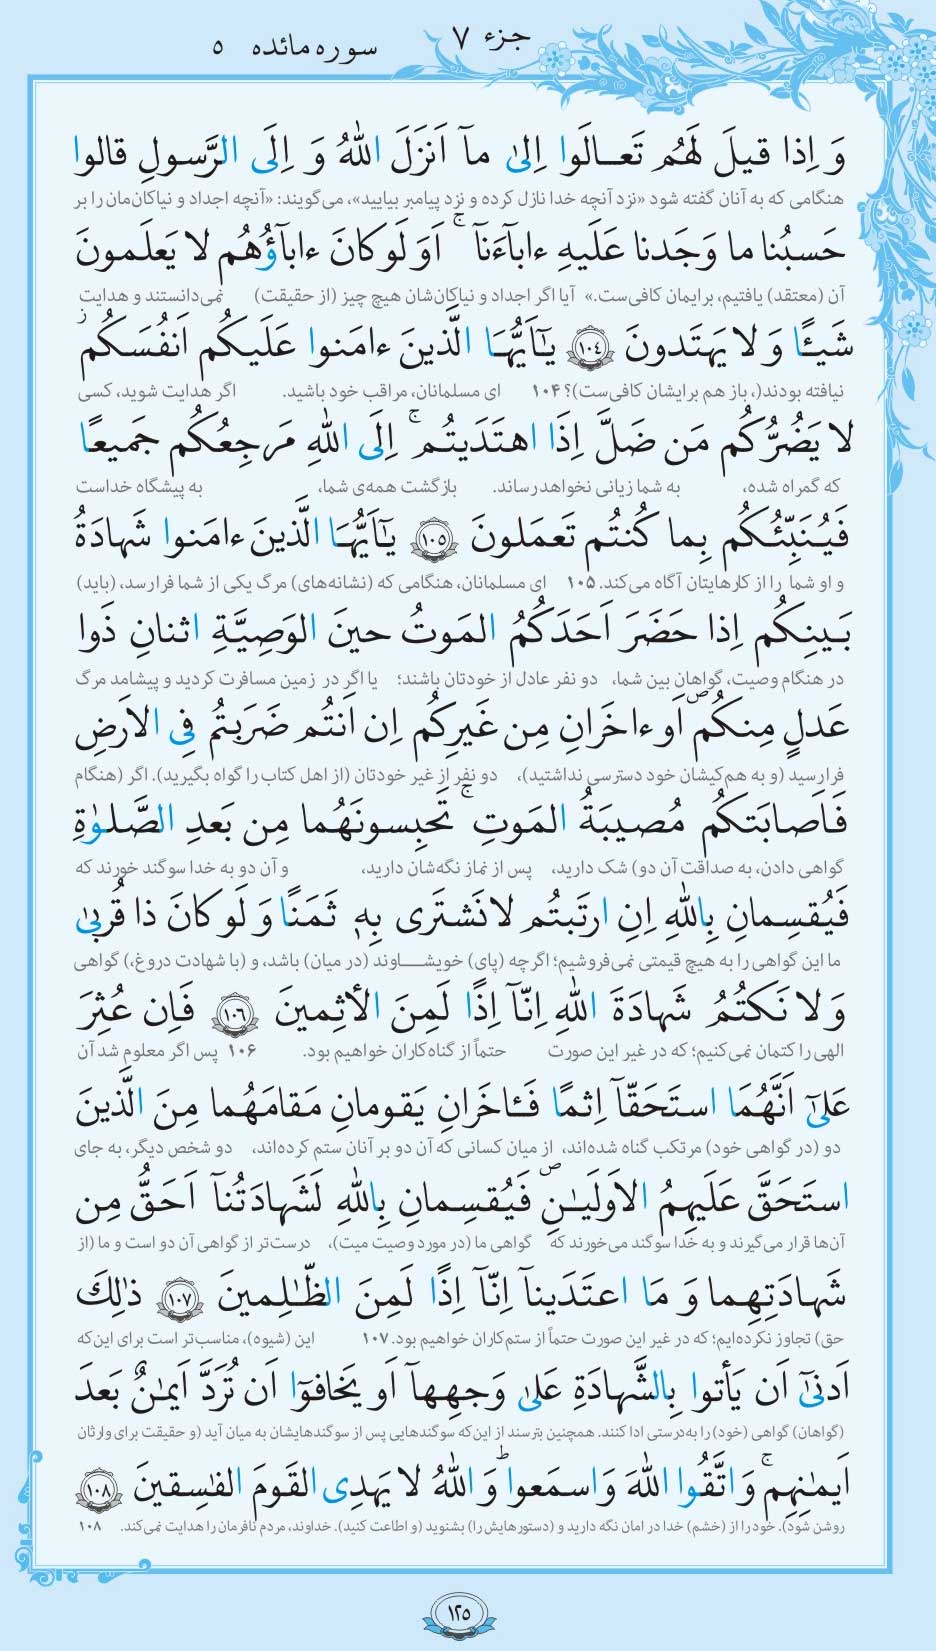 جزء ۷
سوره مائده ۵
وَ اِذا قیلَ لَهُم تَعـالَوا اِلیٰ ماۤ اَنزَلَ اللّٰهُ وَ اِلَی الرَّسولِ قالوا
هنگامی که به آنان گفته شود «نزد آنچه خدا نازل کرده و نزد پیامبر بیایید»، می‌گویند: «آنچه اجداد و نیاکان‌مان را بر
حَسبُنا ما وَجَدنا عَلَیهِ ءابآءَناۤ ۚ اَوَ لَو کانَ ءابآؤُهُم لا یَعلَمونَ
آن (معتقد) یافتیم، برایمان کافی‌ست.» آیا اگر اجداد و نیاکان‌شان هیچ چیز (از حقیقت) نمی‌دانستند و هدایت
شَیـًٔا وَ لا یَهتَدونَ ﴿۱۰۴﴾ یٰۤاَیُّهَا الَّذینَ ءامَنوا عَلَیکُم اَنفُسَکُم ۖ
نیافته بودند(، باز هم برایشان کافی‌ست)؟ ۱۰۴ ای مسلمانان، مراقب خود باشید. اگر هدایت شوید، کسی
لا یَضُرُّکُم مَن ضَلَّ اِذَا اهتَدَیتُم ۚ اِلَی اللّٰهِ مَرجِعُکُم جَمیعًا
که گمراه شده، به شما زیانی نخواهد رساند. بازگشت همه‌ی شما، به پیشگاه خداست
فَیُنَبِّئُکُم بِما کُنتُم تَعمَلونَ ﴿۱۰۵﴾ یٰۤاَیُّهَا الَّذینَ ءامَنوا شَهادَةُ
و او شما را از کارهایتان آگاه می‌کند. ۱۰۵ ای مسلمانان، هنگامی که (نشانه‌های) مرگ یکی از شما فرارسد، (باید)
بَینِکُم اِذا حَضَرَ اَحَدَکُمُ المَوتُ حینَ الوَصِیَّةِ اثنانِ ذَوا
در هنگام وصیت، گواهان بین شما، دو نفر عادل از خودتان باشند؛ یا اگر در زمین مسافرت کردید و پیشامد مرگ
عَدلٍ مِنکُم اَو ءاخَرانِ مِن غَیرِکُم اِن اَنتُم ضَرَبتُم فِی الاَرضِ
فرارسید (و به هم‌کیشان خود دسترسی نداشتید)، دو نفر از غیر خودتان (از اهل کتاب را گواه بگیرید). اگر (هنگام
فَاَصابَتکُم مُصیبَةُ المَوتِ ۚ تَحبِسونَهُما مِن بَعدِ الصَّلوٰةِ
گواهی دادن، به صداقت آن دو) شک دارید، پس از نماز نگه‌شان دارید، و آن دو به خدا سوگند خورند که
فَیُقسِمانِ بِاللّٰهِ اِنِ ارتَبتُم لا نَشتَری بِهٖ ثَمَنًا وَ لَو کانَ ذا قُربیٰ
ما این گواهی را به هیچ قیمتی نمی‌فروشیم؛ اگرچه (پای) خویشاوند (در میان) باشد، و (با شهادت دروغ،) گواهی
وَ لا نَکتُمُ شَهادَةَ اللّٰهِ اِنّاۤ اِذًا لَمِنَ الأثِمینَ ﴿۱۰۶﴾ فَاِن عُثِرَ
الهی را کتمان نمی‌کنیم؛ که در غیر این صورت حتماً از گناه‌کاران خواهیم بود. ۱۰۶ پس اگر معلوم شد آن
عَلیٰۤ اَنَّهُمَا استَحَقّاۤ اِثمًا فَـٔاخَرانِ یَقومانِ مَقامَهُما مِنَ الَّذینَ
دو (در گواهی خود) مرتکب گناه شده‌اند، از میان کسانی که آن دو بر آنان ستم کرده‌اند، دو شخص دیگر، به جای
استَحَقَّ عَلَیهِمُ الاَولَیـٰنِ فَیُقسِمانِ بِاللّٰهِ لَشَهادَتُناۤ اَحَقُّ مِن
آن‌ها قرار می‌گیرند و به خدا سوگند می‌خورند که گواهی ما (در مورد وصیت میت)، درست‌تر از گواهی آن دو است و ما (از
شَهادَتِهِما وَ مَا اعتَدَیناۤ اِنّاۤ اِذًا لَمِنَ الظّٰلِمینَ ﴿۱۰۷﴾ ذٰلِکَ
حق) تجاوز نکرده‌ایم؛ که در غیر این صورت حتماً از ستم‌کاران خواهیم بود. ۱۰۷ این (شیوه)، مناسب‌تر است برای این‌که
اَدنیٰۤ اَن یَأتوا بِالشَّهادَةِ عَلیٰ وَجهِهاۤ اَو یَخافوۤا اَن تُرَدَّ اَیمٰنٌ بَعدَ
(گواهان) گواهی (خود) را به‌درستی ادا کنند. همچنین بترسند از این‌که سوگندهایی پس از سوگندهایشان به میان آید (و حقیقت برای وارثان
اَیمٰنِهِم ۚ وَ اتَّقُوا اللّٰهَ وَ اسمَعوا ۗ وَ اللّٰهُ لا یَهدِی القَومَ الفٰسِقینَ ﴿۱۰۸﴾
روشن شود). خود را از (خشم) خدا در امان نگه دارید و (دستورهایش را) بشنوید (و اطاعت کنید). خداوند، مردم نافرمان را هدایت نمی‌کند. ۱۰۸
۱۲۵